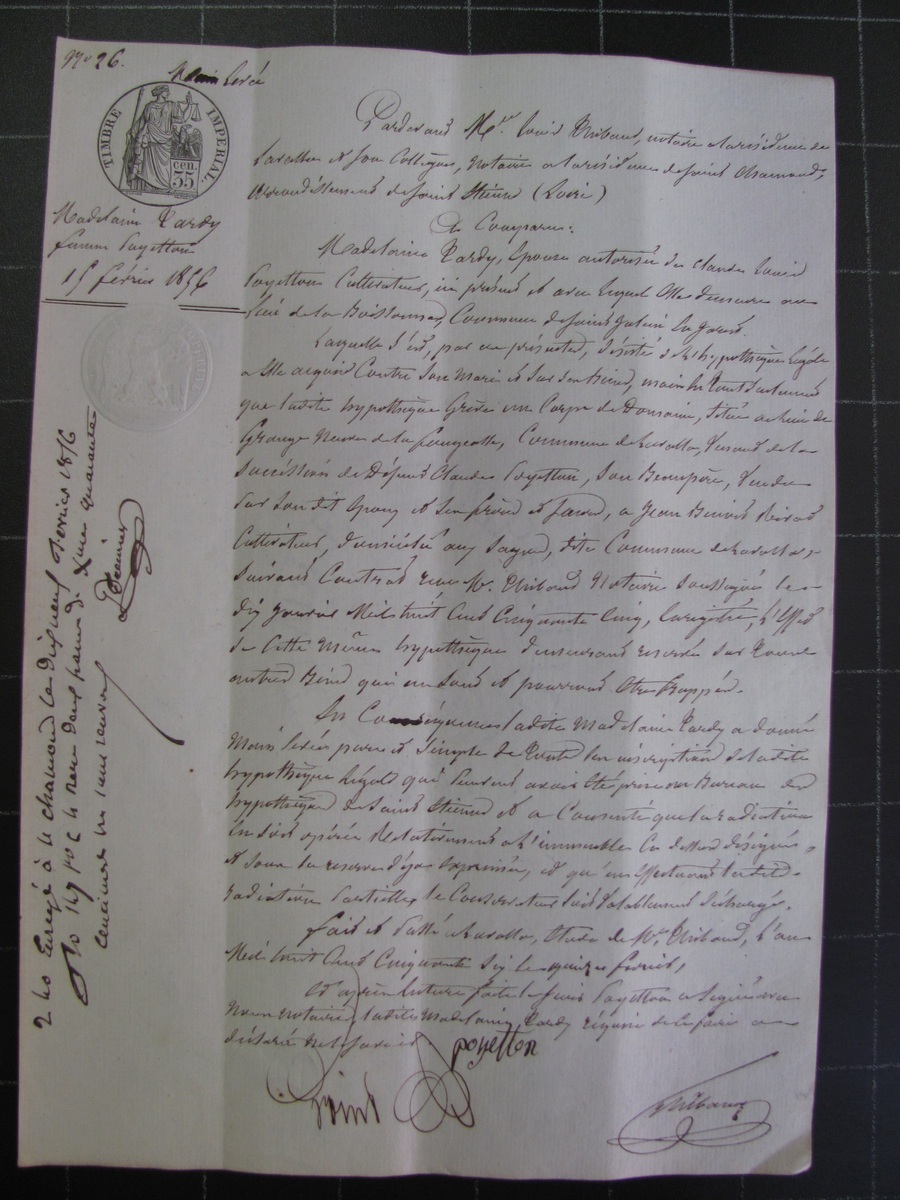 No 26.
Main Levée
TIMBRE IMPÉRIAL
cen. 35
Madelaine Tardy
femme Poyetton
15 février 1856
Pardevant Me. Louis Thibaud, notaire à la résidence de
Lavalla et son Collègue, Notaire à la résidence de Saint Chamond,
arrondissement de Saint Etienne (Loire)
A Comparu:
Madelaine Tardy, Epouse autorisée de Claude Louis
Poyetton Cultivateur, ici présent et avec lequel Elle demeure au
lieu de la Commune de Saint Julien
Laquelle s'est, par ces présentes, désisté de l'hypothèque Légale
à Elle acquise Contre Son Mari et Sur Ses Biens, mais Seulement
que ladite hypothèque Grève un Corps de Domaine, situé au lieu de
Grange Neuve de la Commune de Lavalla, Venant de la
Succession de Défunt Claude Poyetton, Son Beaupère, Vendu
Par Son dit Epoux et Ses frères et a Jean Benoit
Cultivateur, domicilié aux dite Commune de Lavalla,
Suivant Contrat reçu Me. Thibaud Notaire Soussigné le
dix Janvier Mil huit Cent Cinquante Cinq, Enregistré, L'Effet
de Cette Même hypothèque demeurant réservé Sur Tous
autres Biens qui en Sont et pourront être frappés.
En Conséquence ladite Madelaine Tardy a donné
Main levée pure et Simple de Toutes les inscriptions de ladite
hypothèque Légale qui peuvent avoir été prises au Bureau des
hypothèques de Saint Etienne et a Consenti que la radiation
en Soit opérée Relativement à L'immeuble Ci dessus désigné,
et Sous la réserve déja exprimée, et qu'en Effectuant ladite
radiation Partielle, le Conservateur Soit Valablement déchargé.
Fait et Passé à Lavalla, Etude de Me. Thibaud, L'an
Mil huit Cent Cinquante Six le quinze Février,
Et après lecture faite le Sieur Poyetton a Signé avec
Nous notaires, ladite Madelaine Tardy requise de le faire a
déclaré ne le Savoir.
poyetton
Thibaud
240 Enregé à St chamond le Dix neuf Février 1856
fo 147 Vo C 4 reçu deux francs. Dixme quarante
centimes sans renvoi